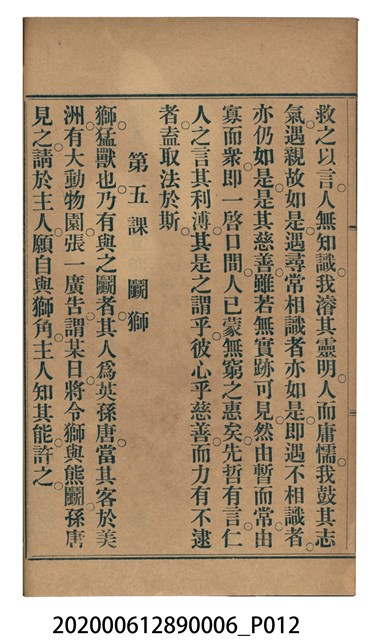 救之以言。人無知識。我濬其靈明。人而庸懦。我鼓其志
氣。遇親故如是。遇尋常相識者亦如是。即遇不相識者。
亦仍如是。是其慈善。雖若無實跡可見。然由暫而常。由
寡而衆。即一啓口間。人已蒙無窮之惠矣。先哲有言。仁
人之言。其利溥。其是之謂乎。彼心乎慈善而力有不逮
者。盍取法於斯。
第五課 鬭獅
獅。猛獸也。乃有與之鬭者。其人爲英孫唐。當其客於美
洲。有大動物園。張一廣告。謂某日將令獅與熊鬭。孫唐
見之。請於主人。願自與獅角。主人知其能。許之。
202000612890006_P012